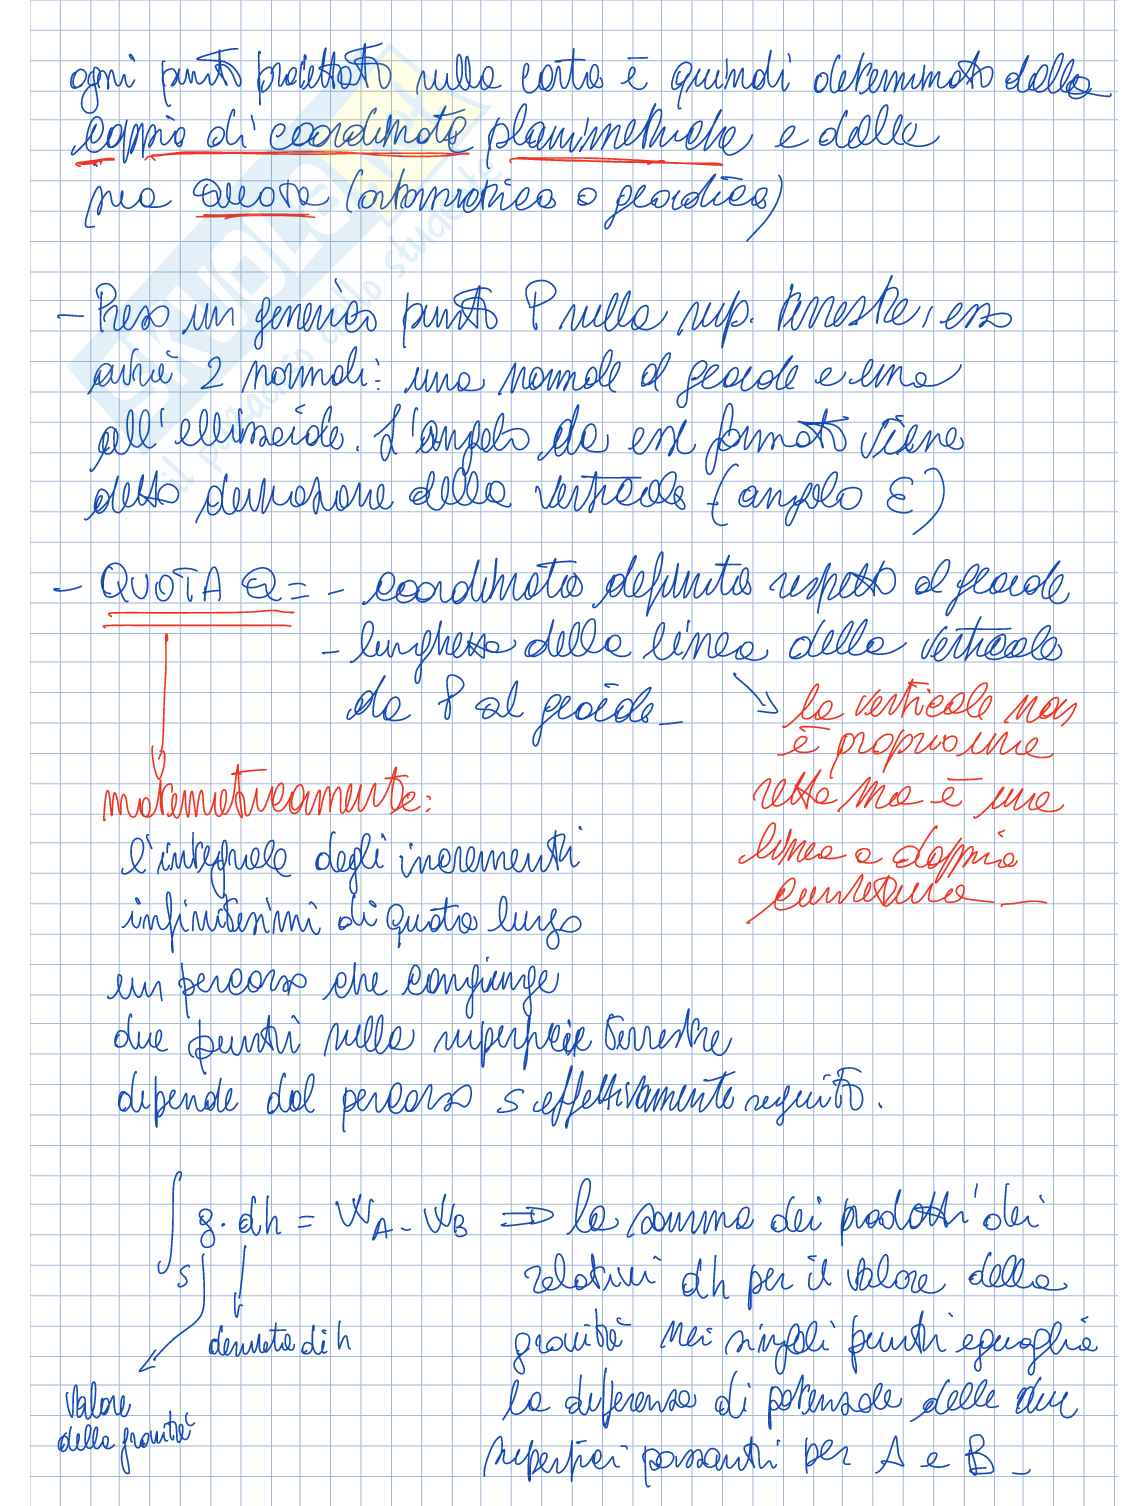 ogni punto proiettato sulla carta è quindi determinato dalla
coppia di coordinate planimetriche e dalla
sua QUOTA (ortometrica o geoidica)
- Preso un generico punto P sulla sup. terrestre, esso
avrà 2 normali: una normale al geoide e una
all'ellissoide. L'angolo da esse formato viene
detto deviazione della verticale (angolo ε)
- QUOTA Q = - coordinata definita rispetto al geoide
- lunghezza della linea della verticale
da P al geoide_
la verticale non
è proprio una
retta ma è una
linea a doppia
curvatura_
matematicamente:
l'integrale degli incrementi
infinitesimi di quota lungo
un percorso che congiunge
due punti sulla superficie terrestre
dipende dal percorso s effettivamente seguito.
∫s g · dh = WA - WB ⇒ la somma dei prodotti dei
relativi dh per il valore della
gravità nei singoli punti eguaglia
la differenza di potenziale delle due
superfici passanti per A e B_
derivata di h
valore
della gravità
SKUOLA
il paradiso dello studente